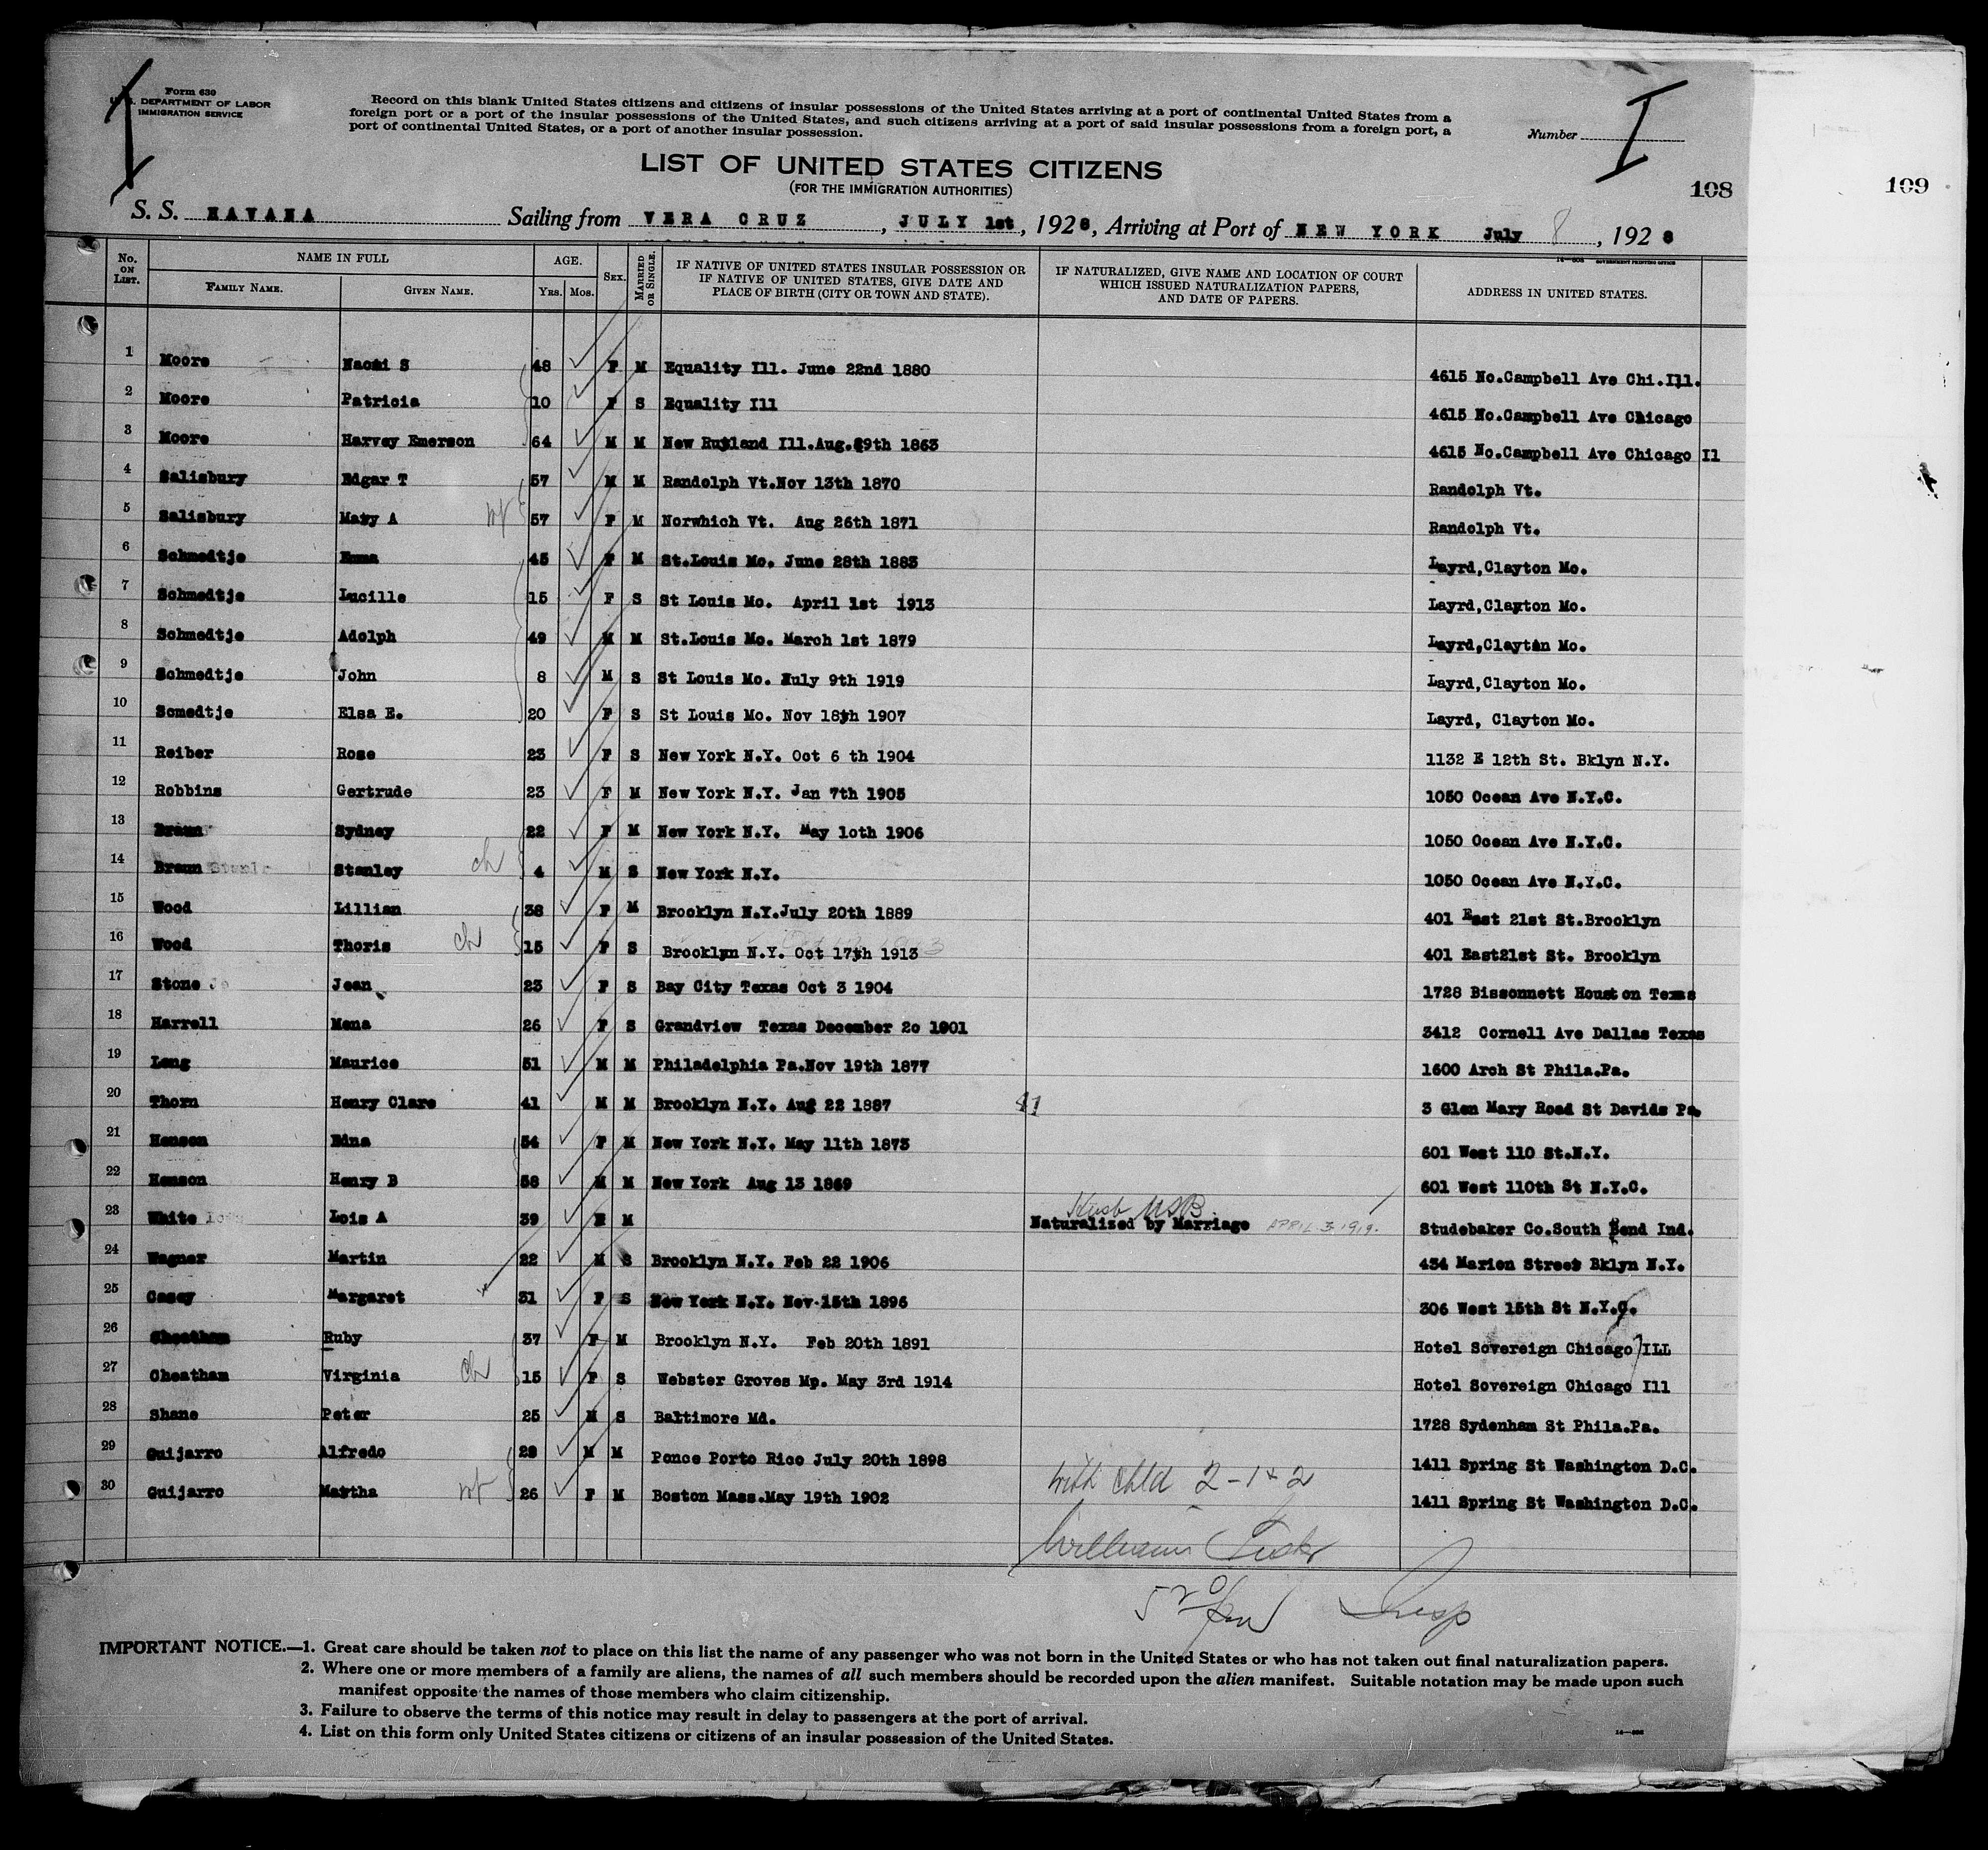 Form 630
U. S. DEPARTMENT OF LABOR
IMMIGRATION SERVICE
Record on this blank United States citizens and citizens of insular possessions of the United States arriving at a port of continental United States from a
foreign port or a port of the insular possessions of the United States, and such citizens arriving at a port of said insular possessions from a foreign port, a
port of continental United States, or a port of another insular possession.
Number I
LIST OF UNITED STATES CITIZENS
(FOR THE IMMIGRATION AUTHORITIES)
108
109
S. S. HAVANA Sailing from VERA CRUZ, JULY 1st, 1928, Arriving at Port of NEW YORK July 8, 1928
14—508 GOVERNMENT PRINTING OFFICE
No. ON LIST. NAME IN FULL FAMILY NAME. GIVEN NAME. AGE. YRS. MOS. SEX. MARRIED OR SINGLE. IF NATIVE OF UNITED STATES INSULAR POSSESSION OR IF NATIVE OF UNITED STATES, GIVE DATE AND PLACE OF BIRTH (CITY OR TOWN AND STATE). IF NATURALIZED, GIVE NAME AND LOCATION OF COURT WHICH ISSUED NATURALIZATION PAPERS, AND DATE OF PAPERS. ADDRESS IN UNITED STATES.
1 Moore Naomi S 48 F M Equality Ill. June 22nd 1880 4615 No.Campbell Ave Chi.Ill.
2 Moore Patricia 10 F S Equality Ill 4615 No.Campbell Ave Chicago
3 Moore Harvey Emerson 64 M M New Rutland Ill.Aug.29th 1863 4615 No.Campbell Ave Chicago Il
4 Salisbury Edgar T 57 M M Randolph Vt.Nov 13th 1870 Randolph Vt.
5 Salisbury Mary A wf 57 F M Norwhich Vt. Aug 26th 1871 Randolph Vt.
6 Schmedtje Emma 45 F M St.Louis Mo. June 28th 1883 Layrd,Clayton Mo.
7 Schmedtje Lucille 15 F S St Louis Mo. April 1st 1913 Layrd,Clayton Mo.
8 Schmedtje Adolph 49 M M St.Louis Mo. March 1st 1879 Layrd,Clayton Mo.
9 Schmedtje John 8 M S St Louis Mo. July 9th 1919 Layrd,Clayton Mo.
10 Scmedtje Elsa E. 20 F S St Louis Mo. Nov 18th 1907 Layrd, Clayton Mo.
11 Reiber Rose 23 F S New York N.Y. Oct 6 th 1904 1132 E 12th St. Bklyn N.Y.
12 Robbins Gertrude 23 F M New York N.Y. Jan 7th 1905 1050 Ocean Ave N.Y.C.
13 Braun Sydney 22 F M New York N.Y. May 1oth 1906 1050 Ocean Ave N.Y.C.
14 Braun Stanley ch 4 M S New York N.Y. 1050 Ocean Ave N.Y.C.
15 Wood Lillian 38 F M Brooklyn N.Y.July 20th 1889 401 East 21st St.Brooklyn
16 Wood Thoris ch 15 F S Brooklyn N.Y. Oct 17th 1913 401 East21st St. Brooklyn
17 Stone Jean 23 F S Bay City Texas Oct 3 1904 1728 Bissonnett Houston Texas
18 Harrell Mena 26 F S Grandview Texas December 2o 1901 3412 Cornell Ave Dallas Texas
19 Long Maurice 51 M M Philadelphia Pa.Nov 19th 1877 1600 Arch St Phila.Pa.
20 Thorn Henry Clare 41 M M Brooklyn N.Y. Aug 22 1887 41 3 Glen Mary Road St Davids Pa.
21 Henson Edna 54 F M New York N.Y. May 11th 1873 601 West 110 St.N.Y.
22 Henson Henry B 58 M M New York Aug 13 1869 601 West 110th St N.Y.C.
23 White Lois A 39 F M Husb USB. Naturalized by Marriage APRIL 3 1919. Studebaker Co.South Bend Ind.
24 Wagner Martin 22 M S Brooklyn N.Y. Feb 22 1906 434 Marion Street Bklyn N.Y.
25 Casey Margaret 31 F S New York N.Y. Nov.15th 1896 306 West 15th St N.Y.C.
26 Cheatham Ruby 37 F M Brooklyn N.Y. Feb 20th 1891 Hotel Sovereign Chicago ILL
27 Cheatham Virginia ch 15 F S Webster Groves Mo. May 3rd 1914 Hotel Sovereign Chicago Ill
28 Shane Peter 25 M S Baltimore Md. 1728 Sydenham St Phila.Pa.
29 Guijarro Alfredo 29 M M Ponce Porto Rico July 20th 1898 1411 Spring St Washington D.C.
30 Guijarro Martha wf 26 F M Boston Mass.May 19th 1902 1411 Spring St Washington D.C.
with child 2-1+2
William
Insp
IMPORTANT NOTICE.—1. Great care should be taken not to place on this list the name of any passenger who was not born in the United States or who has not taken out final naturalization papers.
2. Where one or more members of a family are aliens, the names of all such members should be recorded upon the alien manifest. Suitable notation may be made upon such
manifest opposite the names of those members who claim citizenship.
3. Failure to observe the terms of this notice may result in delay to passengers at the port of arrival.
4. List on this form only United States citizens or citizens of an insular possession of the United States.
14—508